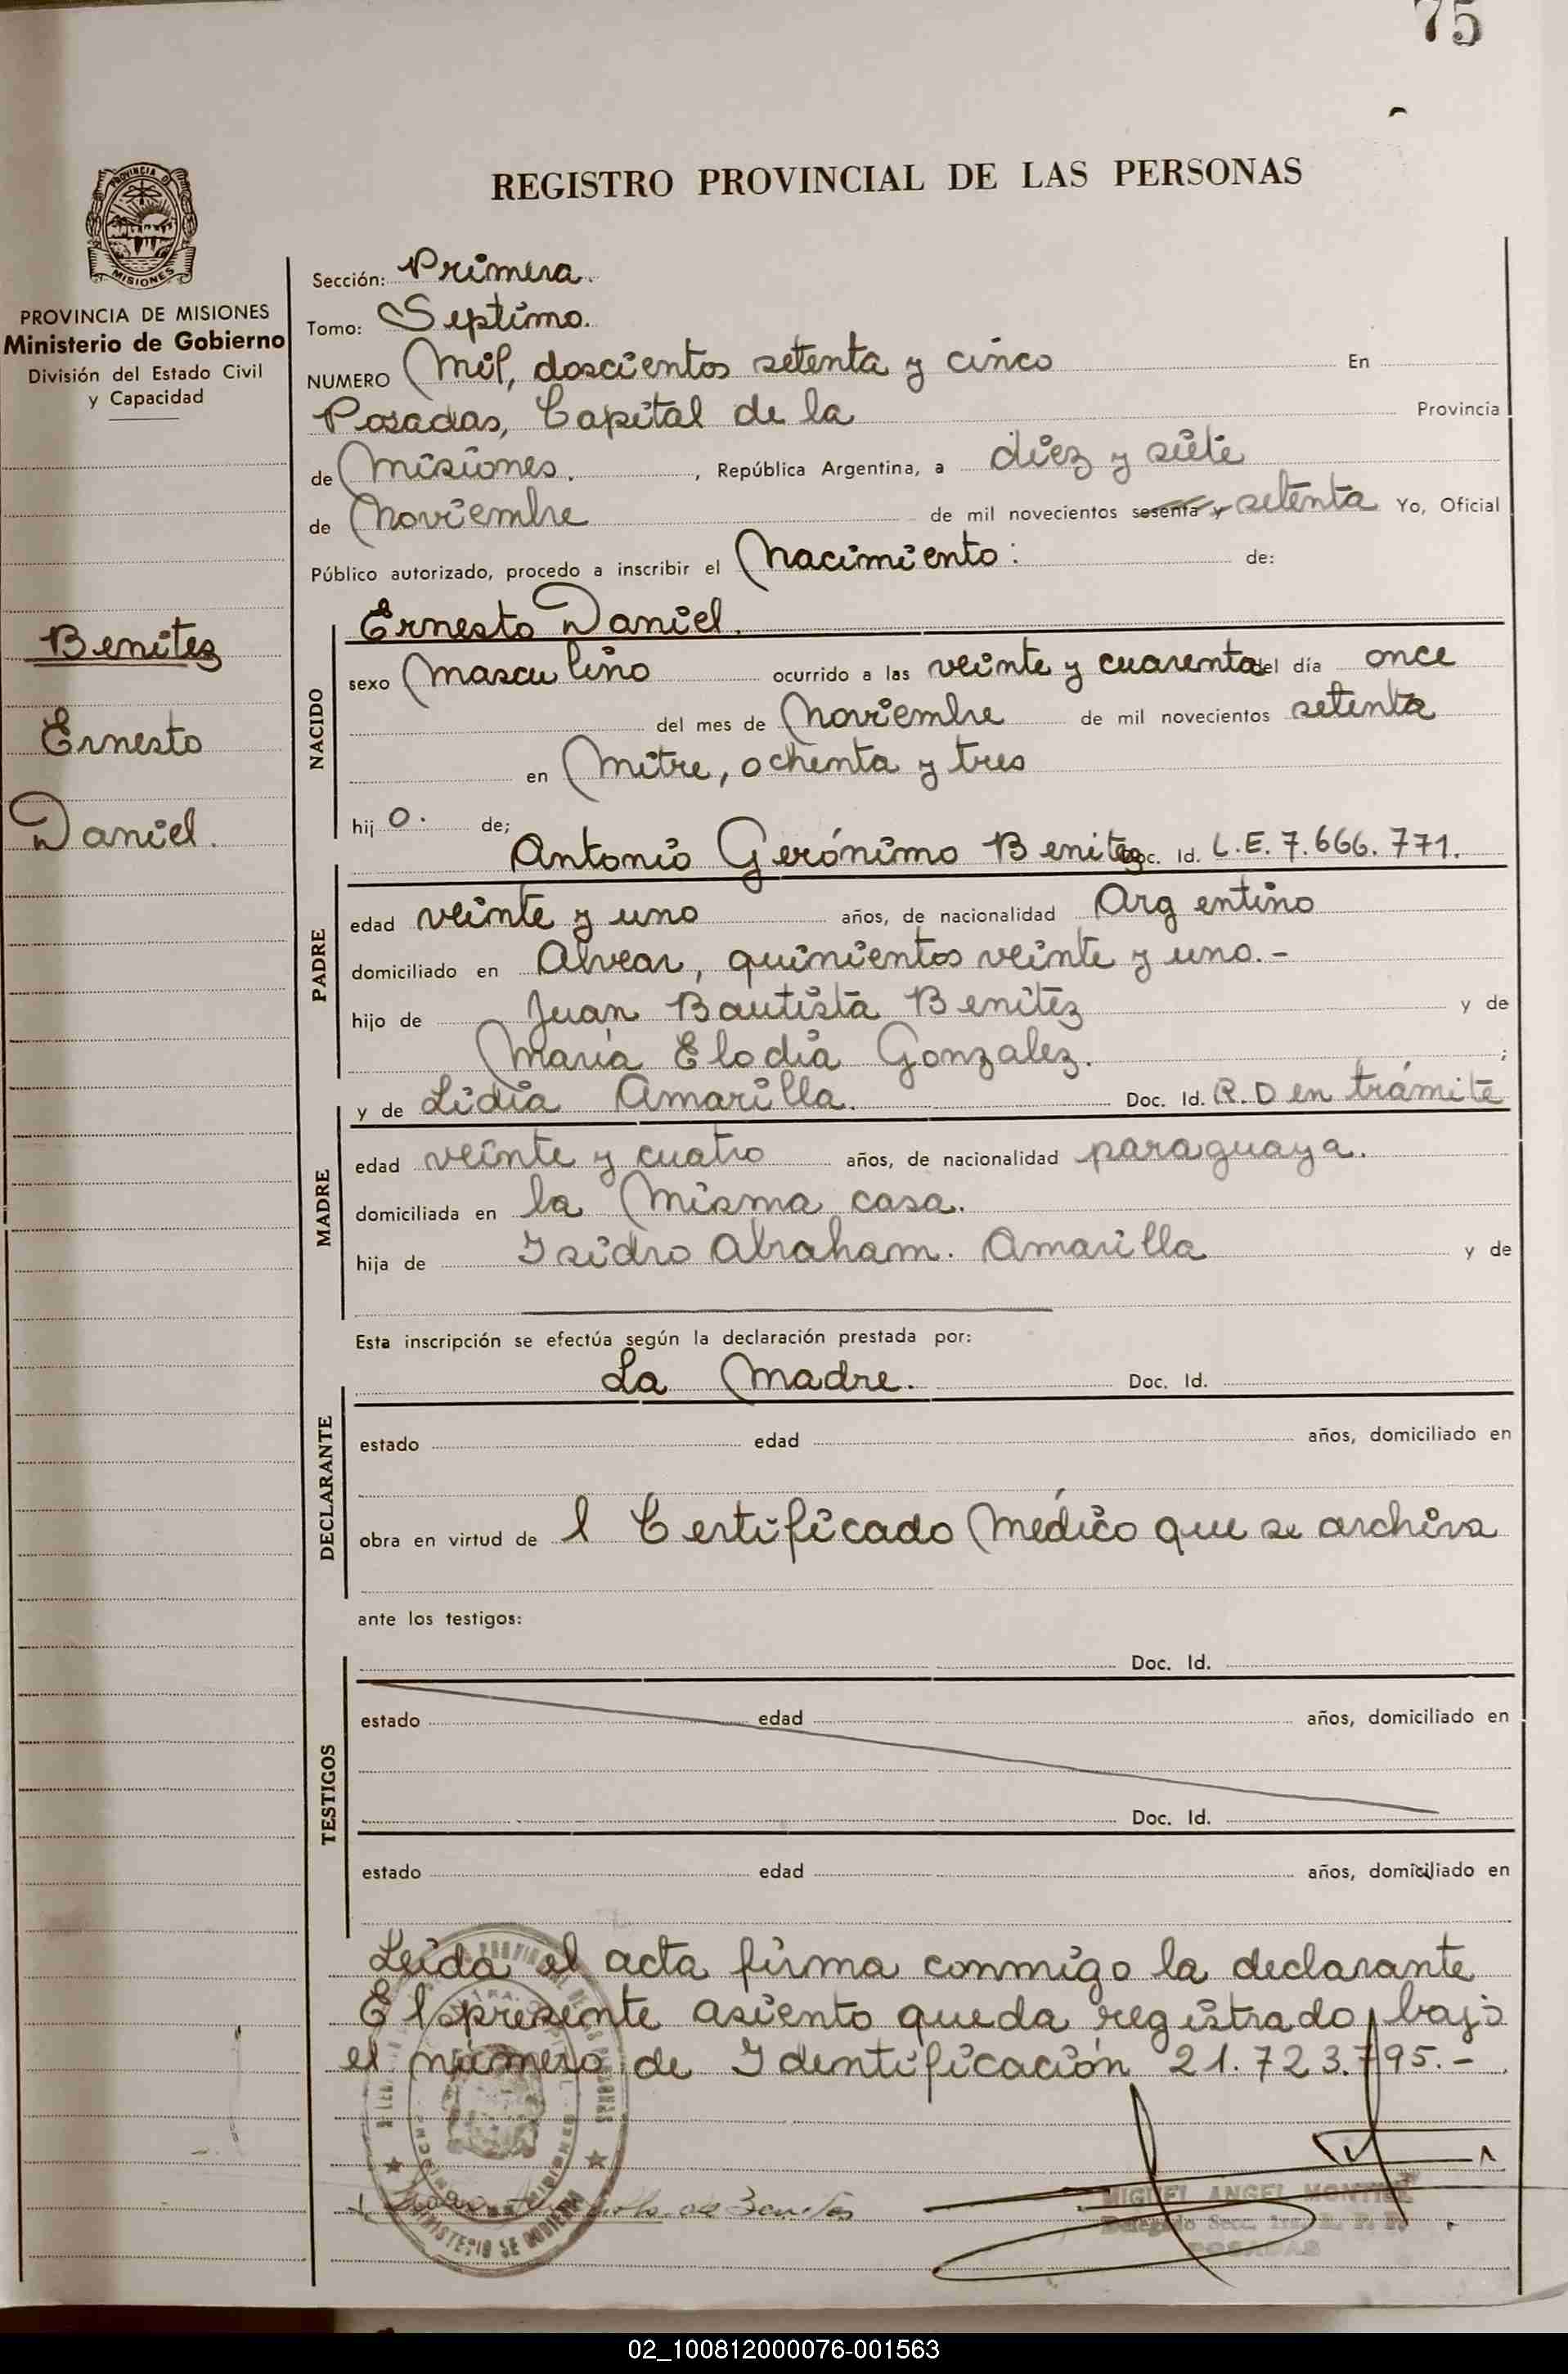 75
REGISTRO PROVINCIAL DE LAS PERSONAS
PROVINCIA DE MISIONES
Ministerio de Gobierno
División del Estado Civil
y Capacidad
Benitez
Ernesto
Daniel.
Sección: Primera.
Tomo: Septimo.
NUMERO Mil, doscientos setenta y cinco En
Posadas, Capital de la Provincia
de Misiones. , República Argentina, a diez y siete
de Noviembre de mil novecientos sesenta y setenta Yo, Oficial
Público autorizado, procedo a inscribir el Nacimiento: de:
NACIDO
Ernesto Daniel.
sexo Masculino ocurrido a las veinte y cuarenta del día once
del mes de Noviembre de mil novecientos setenta
en Mitre, ochenta y tres
hij o. de;
Antonio Gerónimo Benitez Doc. Id. L.E. 7.666.771.
PADRE
edad veinte y uno años, de nacionalidad Argentino
domiciliado en Alvear, quinientos veinte y uno.-
hijo de Juan Bautista Benitez y de
María Elodia Gonzalez. ;
y de Lidia Amarilla. Doc. Id. R.D en trámite
MADRE
edad veinte y cuatro años, de nacionalidad paraguaya.
domiciliada en la Misma casa.
hija de Isidro Abraham. Amarilla y de
Esta inscripción se efectúa según la declaración prestada por:
La Madre. Doc. Id.
DECLARANTE
estado edad años, domiciliado en
obra en virtud de l Certificado Médico que se archiva
ante los testigos:
Doc. Id.
TESTIGOS
estado edad años, domiciliado en
Doc. Id.
estado edad años, domiciliado en
Leida el acta firma conmigo la declarante
El presente asiento queda registrado bajo
el número de Identificación 21.723.795.-
de Benites
MIGUEL ANGEL MONTIEL
Delegado Secc. 1ra. R. P. P.
POSADAS
02_100812000076-001563